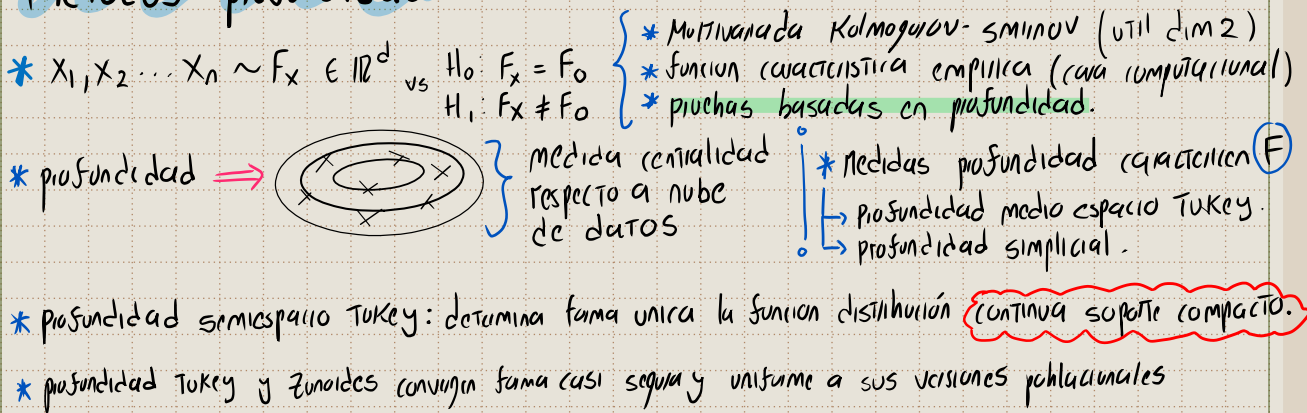 * X₁, X₂ ... Xₙ ~ Fₓ ∈ ℝᵈ vs H₀: Fₓ = F₀
H₁: Fₓ ≠ F₀
* Multivariada Kolmogorov-Smirnov (util dim 2)
* funcion caracteristica empirica (cara computacional)
* pruebas basadas en profundidad.
* profundidad ⇒
medida centralidad
respecto a nube
de datos
* Medidas profundidad caracterizen F
→ profundidad medio espacio Tukey.
→ profundidad simplicial.
* profundidad semiespacio Tukey: determina forma unica la funcion distribución continua soporte compacto.
* profundidad Tukey y Zonoides convergen forma casi segura y uniforme a sus versiones poblacionales